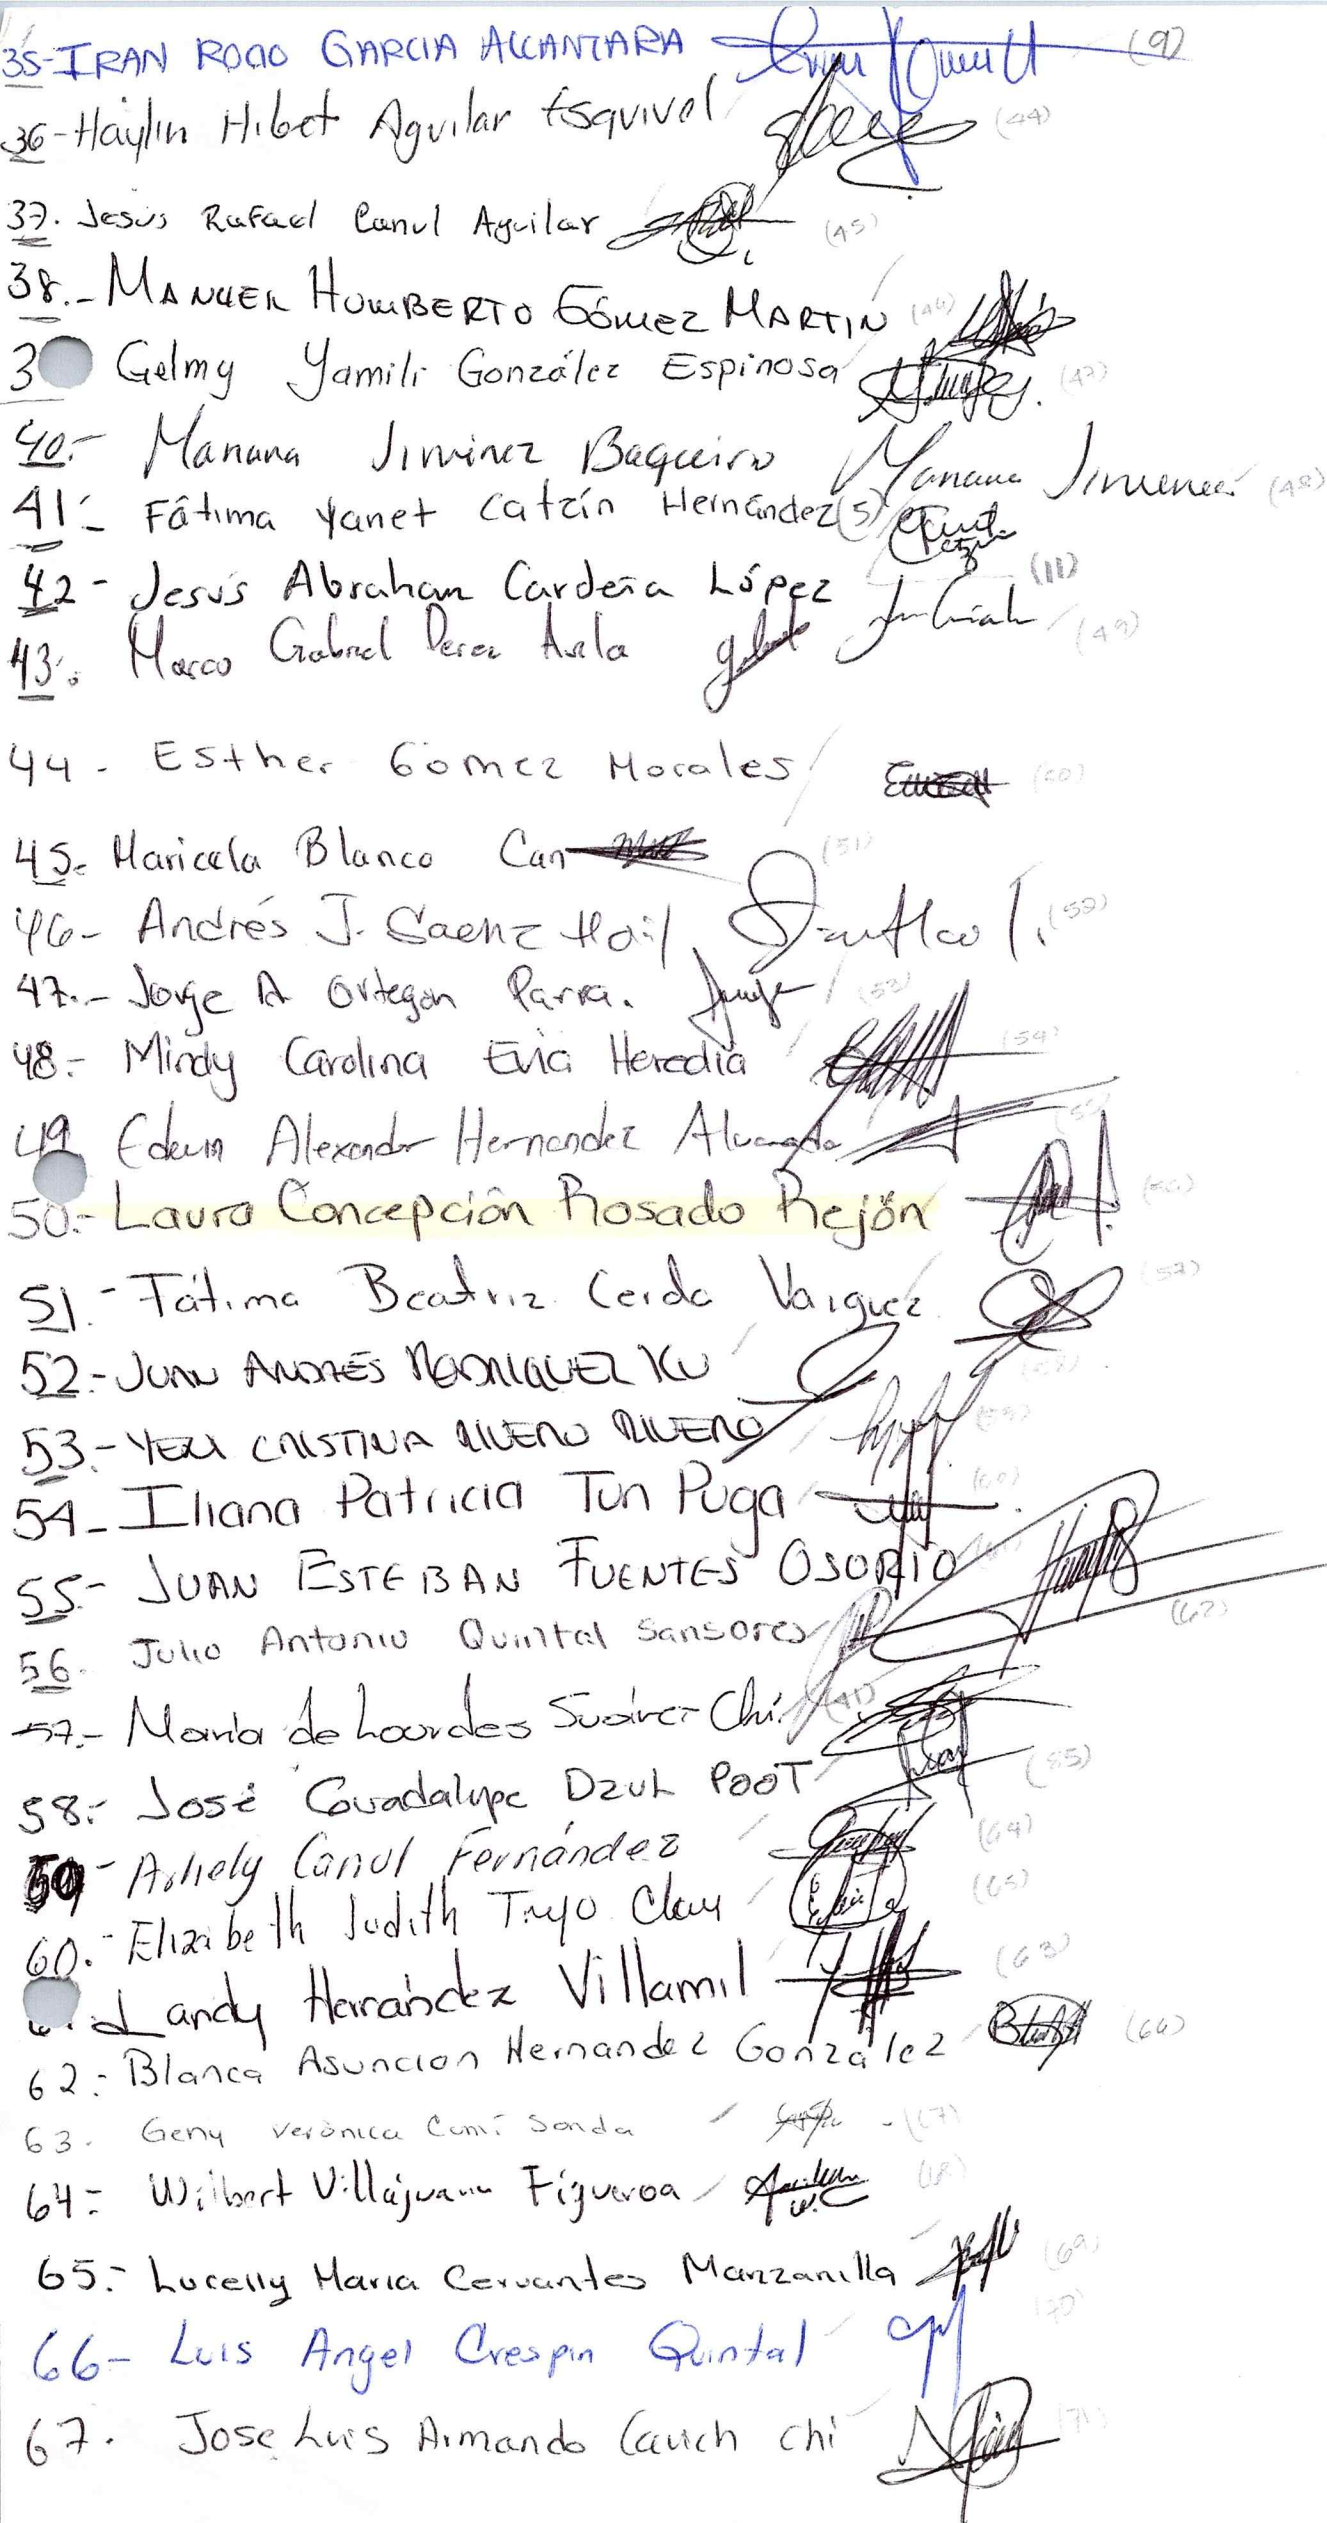 35-IRAN ROCIO GARCIA ALCANTARA (9)
36-Haylin Hibet Aguilar Esquivel (44)
37. Jesús Rafael Canul Aguilar (45)
38.- MANUEL HUMBERTO GÓMEZ MARTIN (46)
3 Gelmy Yamili González Espinosa (47)
40.- Manana Jiminez Baqueiro Manana Jimenez (48)
41.- Fátima Yanet Catzín Hernández (5)
42- Jesús Abraham Cardeña López (11)
43. Marco Gabriel Perez Avila (49)
44- Esther Gomez Morales (50)
45.- Maricela Blanco Can (51)
46- Andrés J. Saenz (52)
47.- Jorge A Ortegon Parra. (53)
48.- Mindy Carolina Evia Heredia (54)
49 Edwin Alexander Hernandez Alvarado (55)
50.- Laura Concepción Rosado Rejón (56)
51.- Fátima Beatriz Cerda Vazquez (57)
52.- JUAN ANDRÉS RODRIGUEZ KU (58)
53.- YERI CRISTINA RIVERO RIVERO (59)
54- Iliana Patricia Tun Puga (60)
55- JUAN ESTEBAN FUENTES OSORIO (61)
56. Julio Antonio Quintal Sansores (62)
57.- María de Lourdes Suárez Chi. (41)
58.- José Guadalupe DZUL POOT (55)
59- Arhely Canul Fernández (64)
60.- Elizabeth Judith Trejo (65)
Landy Hernández Villamil (63)
62.- Blanca Asuncion Hernandez González (66)
63. Geny Verónica Sonda (67)
64- Wilbert Villajuana Figueroa (68)
65.- Lucelly Maria Cervantes Manzanilla (69)
66- Luis Angel Crespin Quintal (70)
67. Jose Luis Armando Cauich Chi (71)